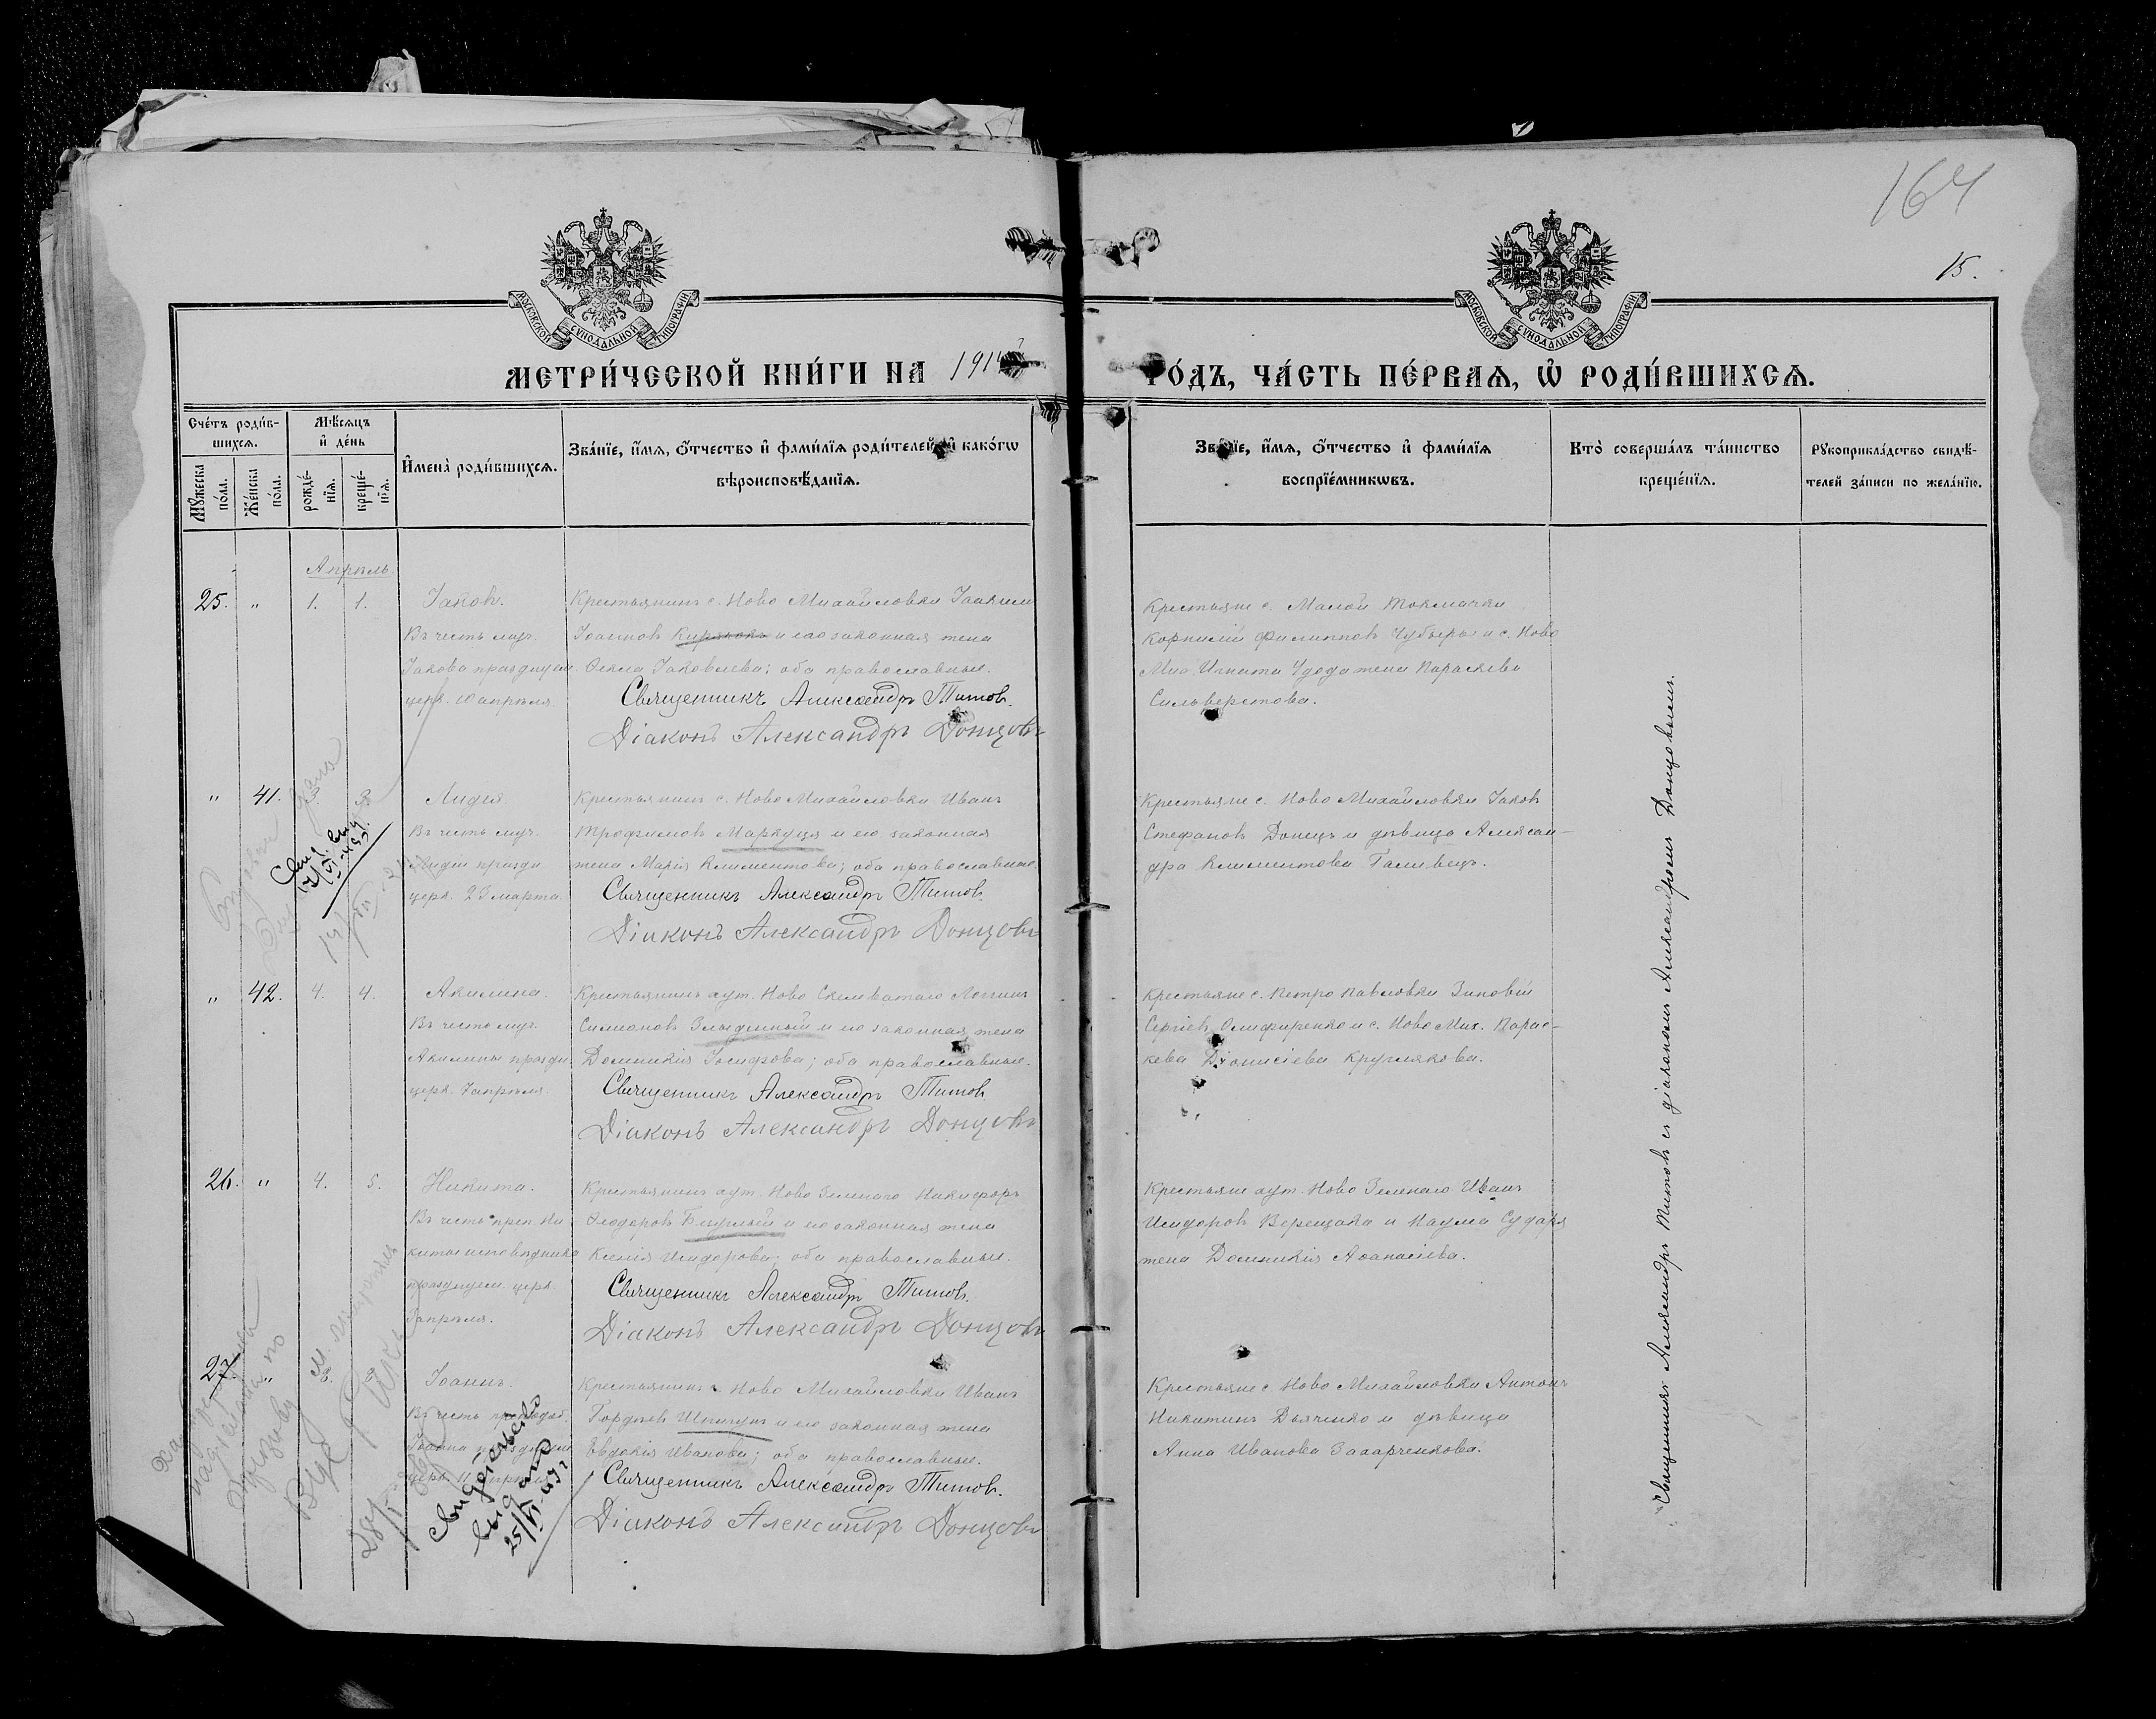 164
15.
МОСКОВСКОЙ СУНОДАЛЬНОЙ ТИПОГРАФІИ
МОСКОВСКОЙ СУНОДАЛЬНОЙ ТИПОГРАФІИ
МЕТРИ́ЧЕСКОЙ КНИ́ГИ НА 1914 ГО́ДЪ, ЧА́СТЬ ПЕ́РВАѦ, Ѽ РОДИ́ВШИХСѦ.
Сче́тъ роди́в-
шихсѧ.
Мѣ́сѧцъ
и҆ де́нь
Мꙋ́жеска по́ла.
Же́нска по́ла.
рожде́-
нїѧ.
креще́-
нїѧ.
И҆мена̀ роди́вшихсѧ.
Зва́нїе, и҆́мѧ, ѻ҆́тчество и҆ фами́лїѧ роди́телей, и҆ како́гѡ
вѣроисповѣ́данїѧ.
Зва́нїе, и҆́мѧ, ѻ҆́тчество и҆ фами́лїѧ
воспрїе́мникѡвъ.
Кто̀ соверша́лъ та́инство
креще́нїѧ.
Рꙋкоприкла́дство свидѣ́-
телей за́писи по жела́нїю.
Апрѣль.
25. " 1. 1. Іаковъ.
Въ честь муч.
Іакова празднуем.
церк. 10 апрѣля.
Крестьянинъ с. Ново Михайловки Іоакимъ
Іоанновъ Кирпковъ и его законная жена
Ѳекла Іаковлева; оба православные.
Священникъ Александръ Титовъ.
Діаконъ Александръ Донцовъ
Крестьяне с. Малой Токмачки
Корнилій Филипповъ Чубырь и с. Ново
Мих. Игната Удода жена Параскева
Сильверстова.
" 41. 3. 3. Лидія
Въ честь муч.
Лидіи праздн.
церк. 23 марта.
Крестьянинъ с. Ново Михайловки Иванъ
Трофимовъ Маркуця и его законная
жена Марія Климентова; оба православные.
Священникъ Александръ Титовъ.
Діаконъ Александръ Донцовъ
Крестьяне с. Ново Михайловки Іаковъ
Стефановъ Донецъ и дѣвица Алексан-
дра Климентова Галивецъ.
" 42. 4. 4. Акилина.
Въ честь муч.
Акилины праздн.
церк. 7 апрѣля.
Крестьянинъ хут. Ново Скелеватаго Логинъ
Симеоновъ Злыденный и его законная жена
Домникія Іосифова; оба православные.
Священникъ Александръ Титовъ
Діаконъ Александръ Донцовъ
Крестьяне с. Петро Павловки Зиновій
Сергіевъ Олифиренко и с. Ново Мих. Парас-
кева Діонисіева Круглякова.
26. " 4. 5. Никита.
Въ честь преп. Ни
киты исповѣдника
празднуем. церк.
3 апрѣля.
Крестьянинъ хут. Ново Зеленаго Никифоръ
Ѳеодоровъ Бгурлый и его законная жена
Ксенія Исидорова; оба православные.
Священникъ Александръ Титовъ.
Діаконъ Александръ Донцовъ
Крестьяне хут. Ново Зеленаго Иванъ
Исидоровъ Верещака и Наума Сударя
жена Домникія Аѳанасіева.
27. " Іоаннъ.
Въ честь преподоб.
Іоанна празднуем
церк. 11 апрѣля
Крестьянинъ с. Ново Михайловки Иванъ
Гордѣевъ Шпигунъ и его законная жена
Евдокія Иванова; оба православные.
Священникъ Александръ Титовъ.
Діаконъ Александръ Донцовъ
Крестьяне с. Ново Михайловки Антонъ
Никитинъ Дьяченко и дѣвица
Анна Иванова Захарченкова.
Священникъ Александръ Титовъ съ діакономъ Александромъ Донцовымъ.